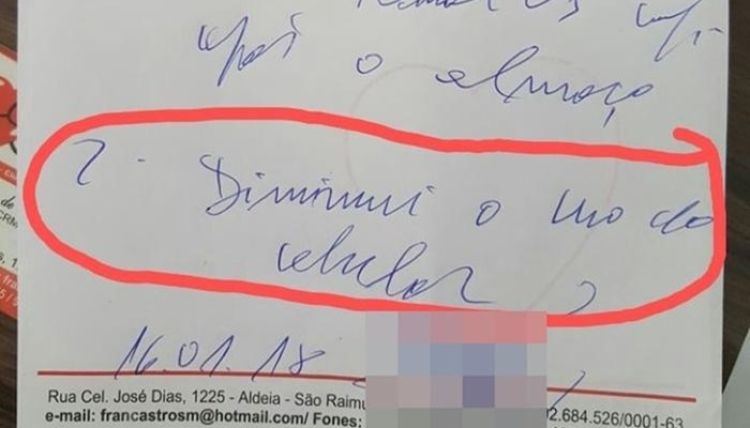 após o almoço
2 - Diminuir o uso do
celular
16.01.18
Rua Cel. José Dias, 1225 - Aldeia - São Raimu
e-mail: francastrosm@hotmail.com/ Fones:
2.684.526/0001-63